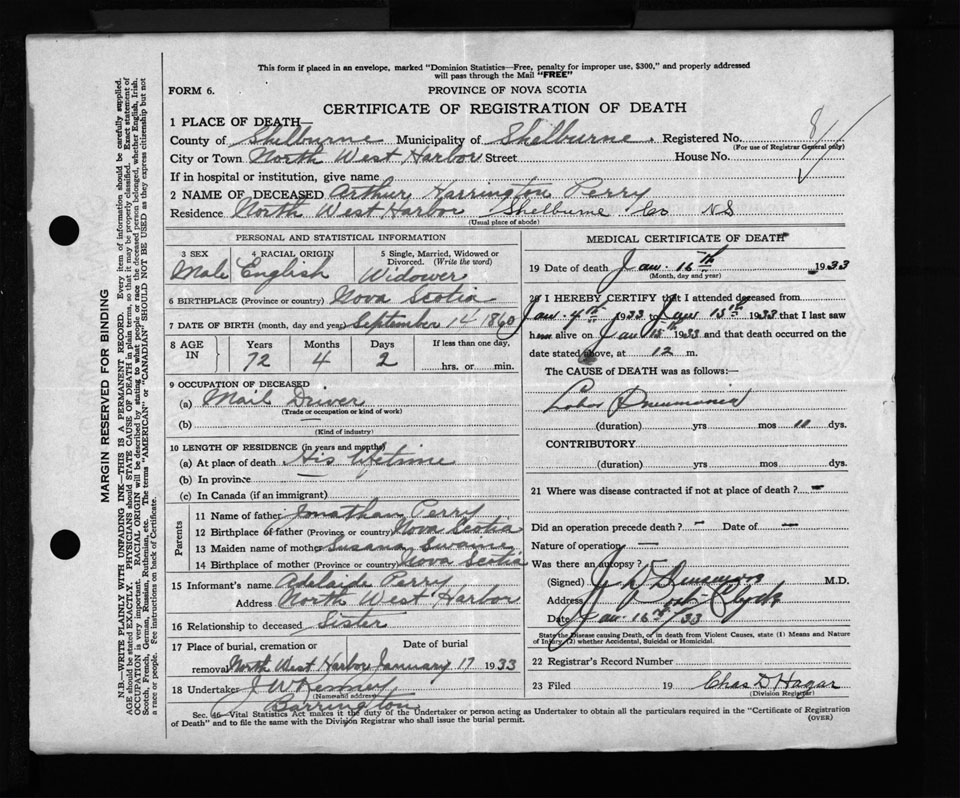 This form if placed in an envelope, marked "Dominion Statistics—Free, penalty for improper use, $300," and properly addressed
will pass through the Mail "FREE"
FORM 6.
PROVINCE OF NOVA SCOTIA
CERTIFICATE OF REGISTRATION OF DEATH
1 PLACE OF DEATH—
County of Shelburne Municipality of Shelburne. Registered No. 8
(For use of Registrar General only)
City or Town North West Harbor Street House No.
If in hospital or institution, give name
2 NAME OF DECEASED Arthur Harrington Perry
Residence North West Harbor Shelburne Co NS
(Usual place of abode)
PERSONAL AND STATISTICAL INFORMATION
3 SEX 4 RACIAL ORIGIN 5 Single, Married, Widowed or Divorced. (Write the word)
Male English Widower
6 BIRTHPLACE (Province or country) Nova Scotia
7 DATE OF BIRTH (month, day and year) September 14 1860
8 AGE IN Years Months Days If less than one day,
72 4 2 hrs. or min.
9 OCCUPATION OF DECEASED
(a) Mail Driver
(Trade or occupation or kind of work)
(b) —
(Kind of industry)
10 LENGTH OF RESIDENCE (in years and months)
(a) At place of death His lifetime
(b) In province —
(c) In Canada (if an immigrant)
Parents
11 Name of father Jonathan Perry
12 Birthplace of father (Province or country) Nova Scotia
13 Maiden name of mother Susana Swaine
14 Birthplace of mother (Province or country) Nova Scotia
15 Informant's name Adelaide Perry
Address North West Harbor
16 Relationship to deceased Sister
17 Place of burial, cremation or Date of burial
removal North West Harbor January 17 1933
18 Undertaker J W Kenney
(Name and address)
Barrington
MEDICAL CERTIFICATE OF DEATH
19 Date of death Jan. 16th 1933
(Month, day and year)
20 I HEREBY CERTIFY that I attended deceased from
Jan. 4th 1933 to Jan 15th 1933 that I last saw
him alive on Jan 15th 1933 and that death occurred on the
date stated above, at 12 m.
The CAUSE of DEATH was as follows:—
Lobar Pneumonia
(duration) yrs mos 11 dys.
CONTRIBUTORY
(duration) yrs mos dys.
21 Where was disease contracted if not at place of death? —
Did an operation precede death? — Date of —
Nature of operation —
Was there an autopsy? —
(Signed) J M.D.
Address Port Clyde
Date Jan 16th/33
State the Disease causing Death, or in death from Violent Causes, state (1) Means and Nature
of Injury, (2) whether Accidental, Suicidal or Homicidal.
22 Registrar's Record Number
23 Filed 19 Chas D Hagar
(Division Registrar)
Sec. 46—Vital Statistics Act makes it the duty of the Undertaker or person acting as Undertaker to obtain all the particulars required in the "Certificate of Registration
of Death" and to file the same with the Division Registrar who shall issue the burial permit.
(OVER)
MARGIN RESERVED FOR BINDING
N.B.—WRITE PLAINLY WITH UNFADING INK—THIS IS A PERMANENT RECORD. Every item of information should be carefully supplied.
AGE should be stated EXACTLY. PHYSICIANS should STATE CAUSE OF DEATH in plain terms, so that it may be properly classified. Exact statement of
OCCUPATION is very important. RACIAL ORIGIN will be described by stating to what people or race the deceased person belonged, whether English, Irish,
Scotch, French, German, Russian, Ruthenian, etc. The terms "AMERICAN" or "CANADIAN" SHOULD NOT BE USED as they express citizenship but not
a race or people. See instructions on back of Certificate.